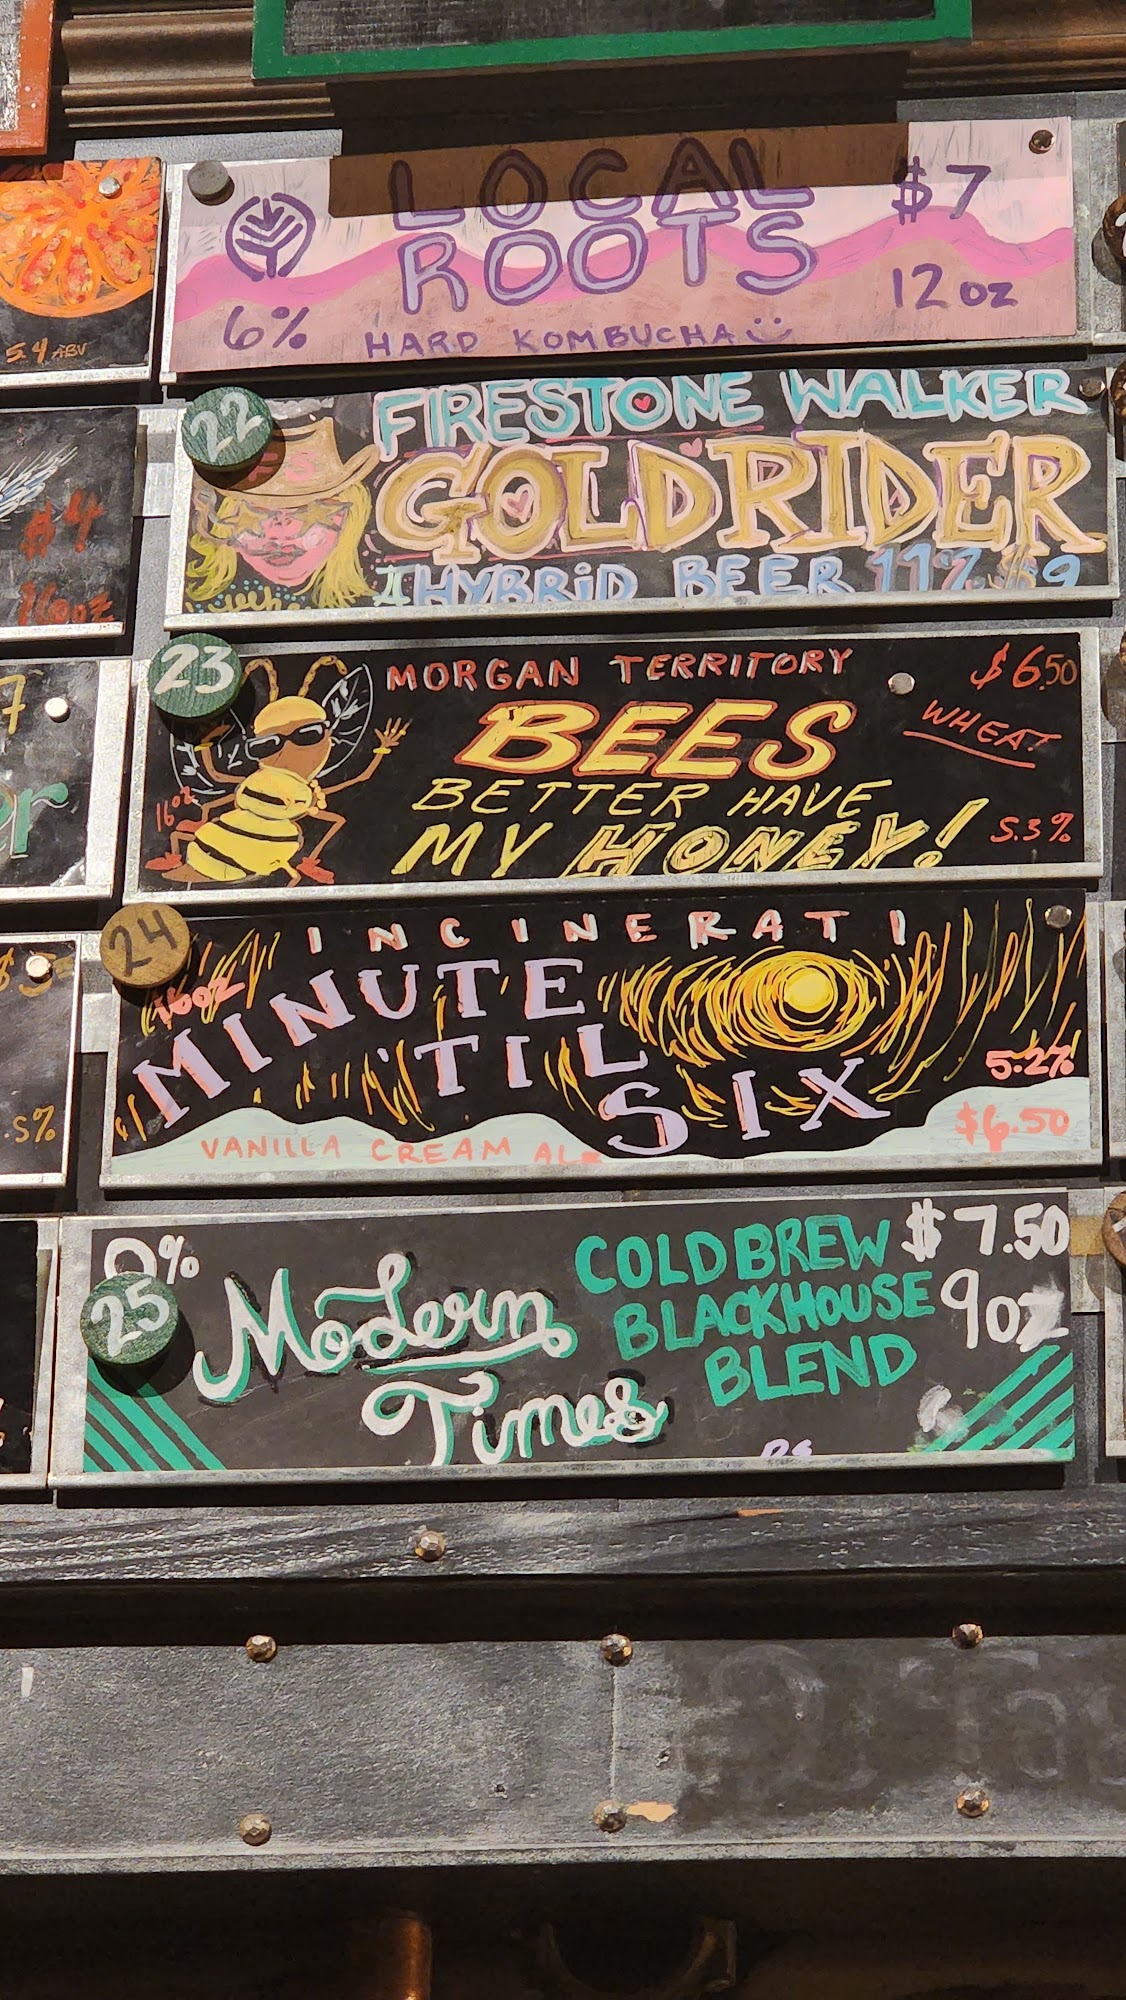 LOCAL
ROOTS
$7
12 oz
6%
HARD KOMBUCHA
5.4 ABV
22
FIRESTONE WALKER
GOLDRIDER
HYBRiD BEER 11% $9
$4
16oz
23
MORGAN TERRITORY
$6.50
BEES
WHEAT
BETTER HAVE
16oz
MY HONEY!
5.3%
7
24
INCINERATI
16oz
MINUTE
'TIL
SIX
5.2%
$6.50
VANILLA CREAM ALE
.5%
0%
25
Modern
Times
COLD BREW
BLACKHOUSE
BLEND
$7.50
9oz